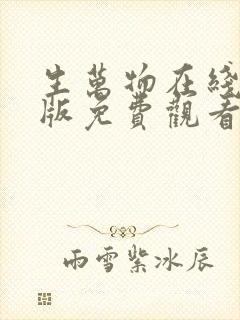 生萬物在綫
版免費觀看
雨雪紫冰辰